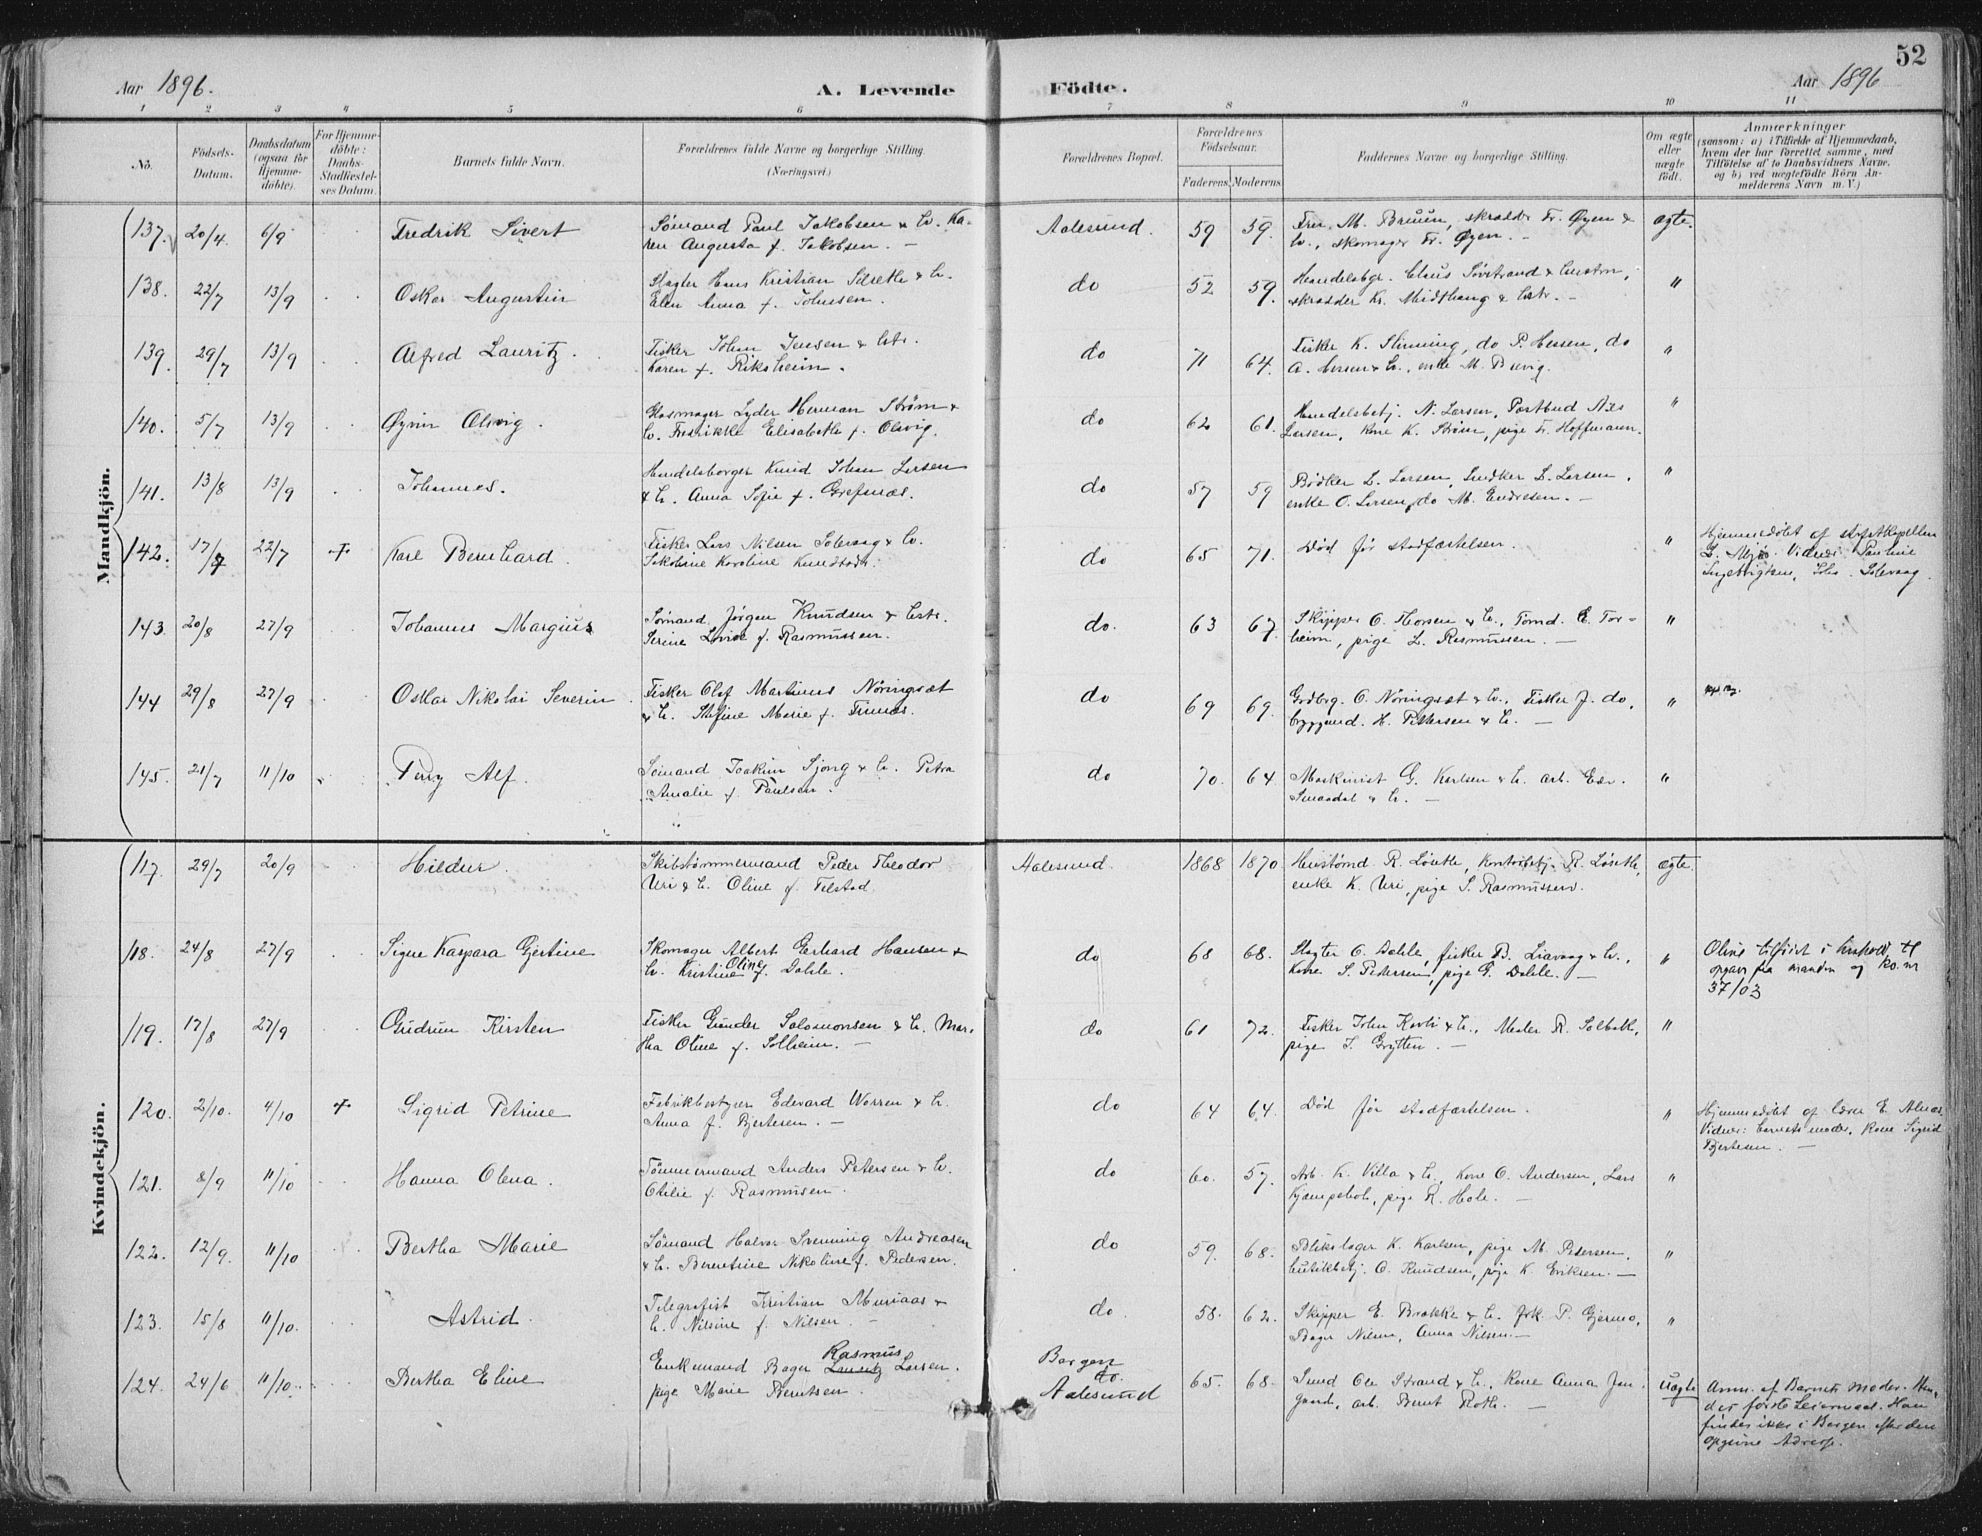 52
Aar 1896.
A. Levende Födte.
Aar 1896
1 2 3 4 5 6 7 8 9 10 11
No.
Födsels-Datum.
Daabsdatum (ogsaa för Hjemme-döbte).
For Hjemme-döbte: Daabs-Stadfæstel-ses Datum.
Barnets fulde Navn.
Forældrenes fulde Navne og borgerlige Stilling. (Næringsvei.)
Forældrenes Bopæl.
Forældrenes Födselsaar.
Faderens. Moderens.
Faddernes Navne og borgerlige Stilling.
Om ægte eller uægte födt.
Anmærkninger
(saasom: a) i Tilfælde af Hjemmedaab, hvem der har forrettet samme, med Tilföielse af to Daabsvidners Navne, og b) ved uægtefödte Börn An-melderens Navn m. V.)
Mandkjön.
137. 20/4 6/9 Fredrik Sivert
Sømand Paul Jakobsen & h. Ka-
ren Augusta f. Jakobsen. —
Aalesund. 59 59.
Fru M. Bruun, skrædder Fr. Øyen &
h., skomager Fr. Øyen. —
ægte.
138. 22/7 13/9 Oskar Augustin
Slagter Hans Kristian & h.
Elen Anna f. Johnsen.
do 52 59.
Handelsbgr. Claus & hustru,
skrædder Kr. Midthaug & hstr. —
"
139. 29/7 13/9 Alfred Lauritz.
Fisker Johan Jensen & hstr.
Karen f. Riksheim.
do 71 64.
Fisker K. Slinning, do P. Hessen, do
A. Hessen & h., enke M. Brevig.
"
140. 5/7 13/9 Øyvin Olsvig.
Glasmager Lyder Herman Strøm &
h. Fredrikke Elisabeth f. Olsvig.
do 62 61.
Handelsbetj. N. Larsen, Postbud Nils
Larsen, kone K. Strøm, pige Fr. Hoffmann.
"
141. 13/8 13/9 Johannes.
Handelsborger Knud Johan Larsen
& h. Anna Sofie f. Grefsnæs.
do 57 59
Bødker L. Larsen, Snedker L. Larsen,
enke O. Larsen, do M. Endresen. —
"
142. 17/7 22/7 Karl Bernhard.
Fisker Lars Nilsen Solevaag & h.
Jakobine Karoline Knudsdtr.
do 65 71.
Død før stadfæstelsen.
"
Hjemmedøbt af
L. Vidner: Pauline
Ingebrigtsen, Johs. Solevaag.
143 20/8 27/9 Johannes Margius
Sømand Jørgen Knudsen & hstr.
Serine Lovise f. Rasmussen.
do. 63 67
Skipper O. Thorsen & h., Tømd. E. Tor-
heim, pige L. Rasmussen. —
"
144 29/8 27/9 Oskar Nikolai Severin
Fisker Olaf Martinus Nøringsæt
& h. Stefine Marie f. Finnes.
do 69 69.
Grdbrg. O. Nøringsæt & h., Fisker J. do,
byggmd. H. Pettersen & h. —
"
145. 21/7 11/10 Perry Alf.
Sømand Joakim Sjong & h. Petra
Amalie f. Paulsen.
do 70. 64
Maskinist G. Karlsen & h. arb. Edv.
Smaadal & h. —
"
Kvindekjön.
117. 29/7 20/9 Hildur.
Skibstømmermand Peder Theodor
Uri & h. Oline f. Tilstad.
Aalesund. 1868 1870.
Hustømd R. Løseth, Kontorbetj. R. Løseth,
enke K. Uri, pige S. Rasmussen.
ægte
118. 24/8 27/9 Signe Kaspara Gjertine
Skomager Albert Gerhard Hansen &
h. Kristine Oline f. Dahle.
do 68 68.
Slagter O. Dahle, fisker B. Liavaag & h.,
Kone S. Pedersen, pige G. Dahle. —
"
Oline tilføiet i henhold til
opgave fra manden og ko. nr
37/03
119. 17/8 27/9 Gudrun Kirsten
Fisker Gunder Salomonsen & h. Mar-
tha Oline f. Solheim. —
do 61 72.
Fisker John Korli & h., Maler R. Solbakk,
pige J. Grytten. —
"
120. 2/10. 4/10 Sigrid Petrine
Fabrikbestyrer Edevard Worren & h.
Anna f. Bjertesen. —
do 64 64.
Død før stadfæstelsen.
"
Hjemmedøbt af lærer E. Alnæs.
Vidner: barnets moder, kone Sigrid
Bjertesen. —
121. 8/9 11/10 Hanna Olena.
Tømmermand Anders Petersen & h.
Otilie f. Rasmusen.
do 60. 57.
Arb. K. Villa & h., kone O. Andersen, Lars
Kjæmpehol, pige R. Hole. —
"
122. 12/9. 11/10 Bertha Marie
Sømand Halvor Svenning Andreasen
& h. Berentine Nikoline f. Pedersen.
do 59. 68.
Blikslager K. Karlsen, pige M. Petersen,
butikbetj. O. Knudsen, pige K. Eriksen. —
"
123. 15/8 11/10. Astrid.
Telegrafist Kristian Muriaas &
h. Nilsine f. Nilsen. —
do. 58. 62.
Skipper E. Brække & h. frk. P. Gjermo,
Bager Nilsen, Anna Nilsen. —
"
124. 24/6 11/10. Bertha Eline
Enkemand Bager Lauritz Rasmus Larsen.
pige Marie Berntsen.
Bergen
do.
Aalesund
65. 68.
Smed Ole Strand & h., Kone Anna Jan-
gaard, arb. Bernt Roth. —
uægte
Anm. af Barnets moder. Hen-
des første Leiermaal. Han
findes ikke i Bergen efter den
opgivne Adresse.